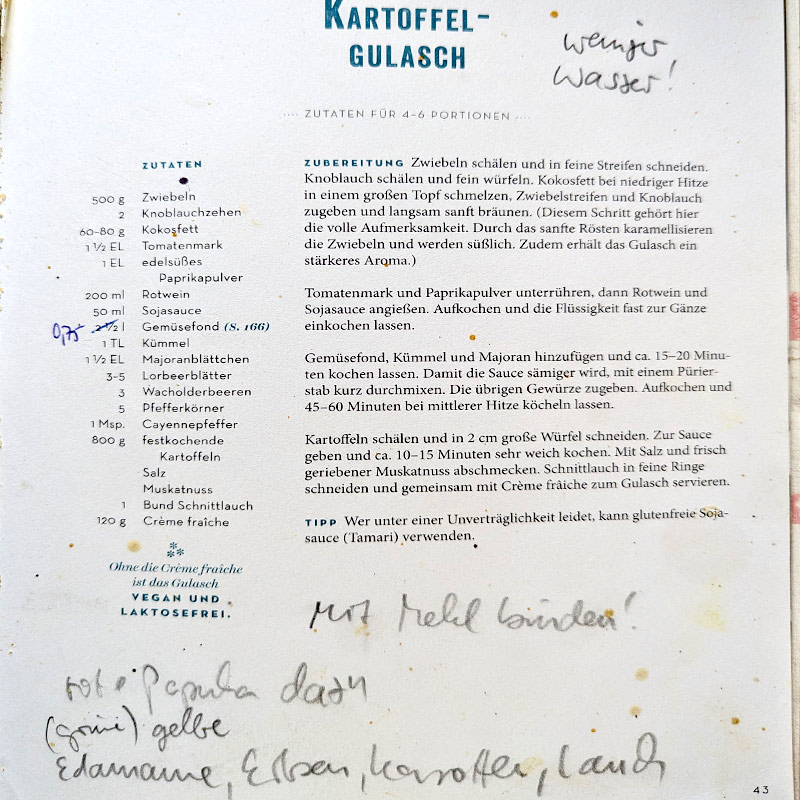 KARTOFFEL-
GULASCH
weniger
Wasser!
ZUTATEN FÜR 4–6 PORTIONEN
ZUTATEN
500 g Zwiebeln
2 Knoblauchzehen
60–80 g Kokosfett
1 ½ EL Tomatenmark
1 EL edelsüßes
Paprikapulver
200 ml Rotwein
50 ml Sojasauce
0,75 2 ½ l Gemüsefond (S. 166)
1 TL Kümmel
1 ½ EL Majoranblättchen
3–5 Lorbeerblätter
3 Wacholderbeeren
5 Pfefferkörner
1 Msp. Cayennepfeffer
800 g festkochende
Kartoffeln
Salz
Muskatnuss
1 Bund Schnittlauch
120 g Crème fraîche
Ohne die Crème fraîche
ist das Gulasch
VEGAN UND
LAKTOSEFREI.
ZUBEREITUNG Zwiebeln schälen und in feine Streifen schneiden.
Knoblauch schälen und fein würfeln. Kokosfett bei niedriger Hitze
in einem großen Topf schmelzen, Zwiebelstreifen und Knoblauch
zugeben und langsam sanft bräunen. (Diesem Schritt gehört hier
die volle Aufmerksamkeit. Durch das sanfte Rösten karamellisieren
die Zwiebeln und werden süßlich. Zudem erhält das Gulasch ein
stärkeres Aroma.)
Tomatenmark und Paprikapulver unterrühren, dann Rotwein und
Sojasauce angießen. Aufkochen und die Flüssigkeit fast zur Gänze
einkochen lassen.
Gemüsefond, Kümmel und Majoran hinzufügen und ca. 15–20 Minu-
ten kochen lassen. Damit die Sauce sämiger wird, mit einem Pürier-
stab kurz durchmixen. Die übrigen Gewürze zugeben. Aufkochen und
45–60 Minuten bei mittlerer Hitze köcheln lassen.
Kartoffeln schälen und in 2 cm große Würfel schneiden. Zur Sauce
geben und ca. 10–15 Minuten sehr weich kochen. Mit Salz und frisch
geriebener Muskatnuss abschmecken. Schnittlauch in feine Ringe
schneiden und gemeinsam mit Crème frâiche zum Gulasch servieren.
TIPP Wer unter einer Unverträglichkeit leidet, kann glutenfreie Soja-
sauce (Tamari) verwenden.
Mit Mehl binden!
rote Paprika dazu
(grüne) gelbe
Edamame, Erbsen, Karotten, Lauch
43